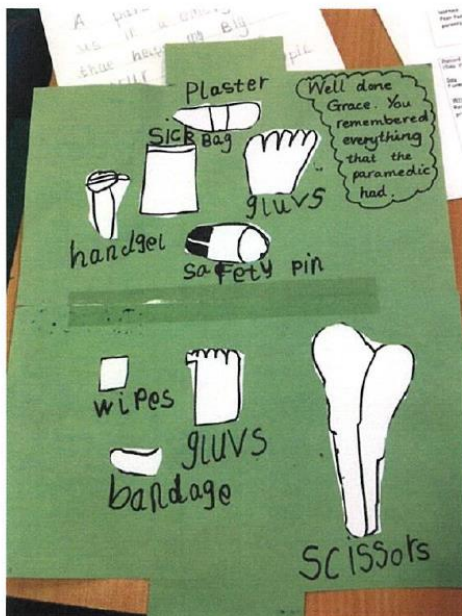 A
us
that
Plaster
Sick Bag
Well done
Grace. You
remembered
everything
that the
paramedic
had.
gluvs
handgel
safety pin
wipes
gluvs
bandage
scissors